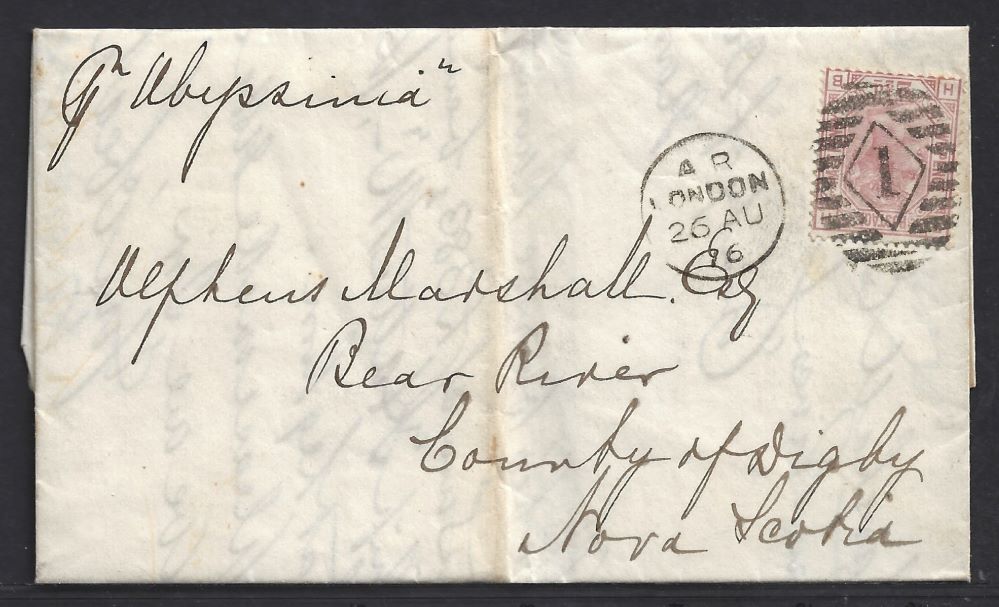 pr "Abyssinia"
B H
A R
LONDON
26 AU
76
1
Alpheus Marshall. Esq
Bear River
County of Digby
Nova Scotia